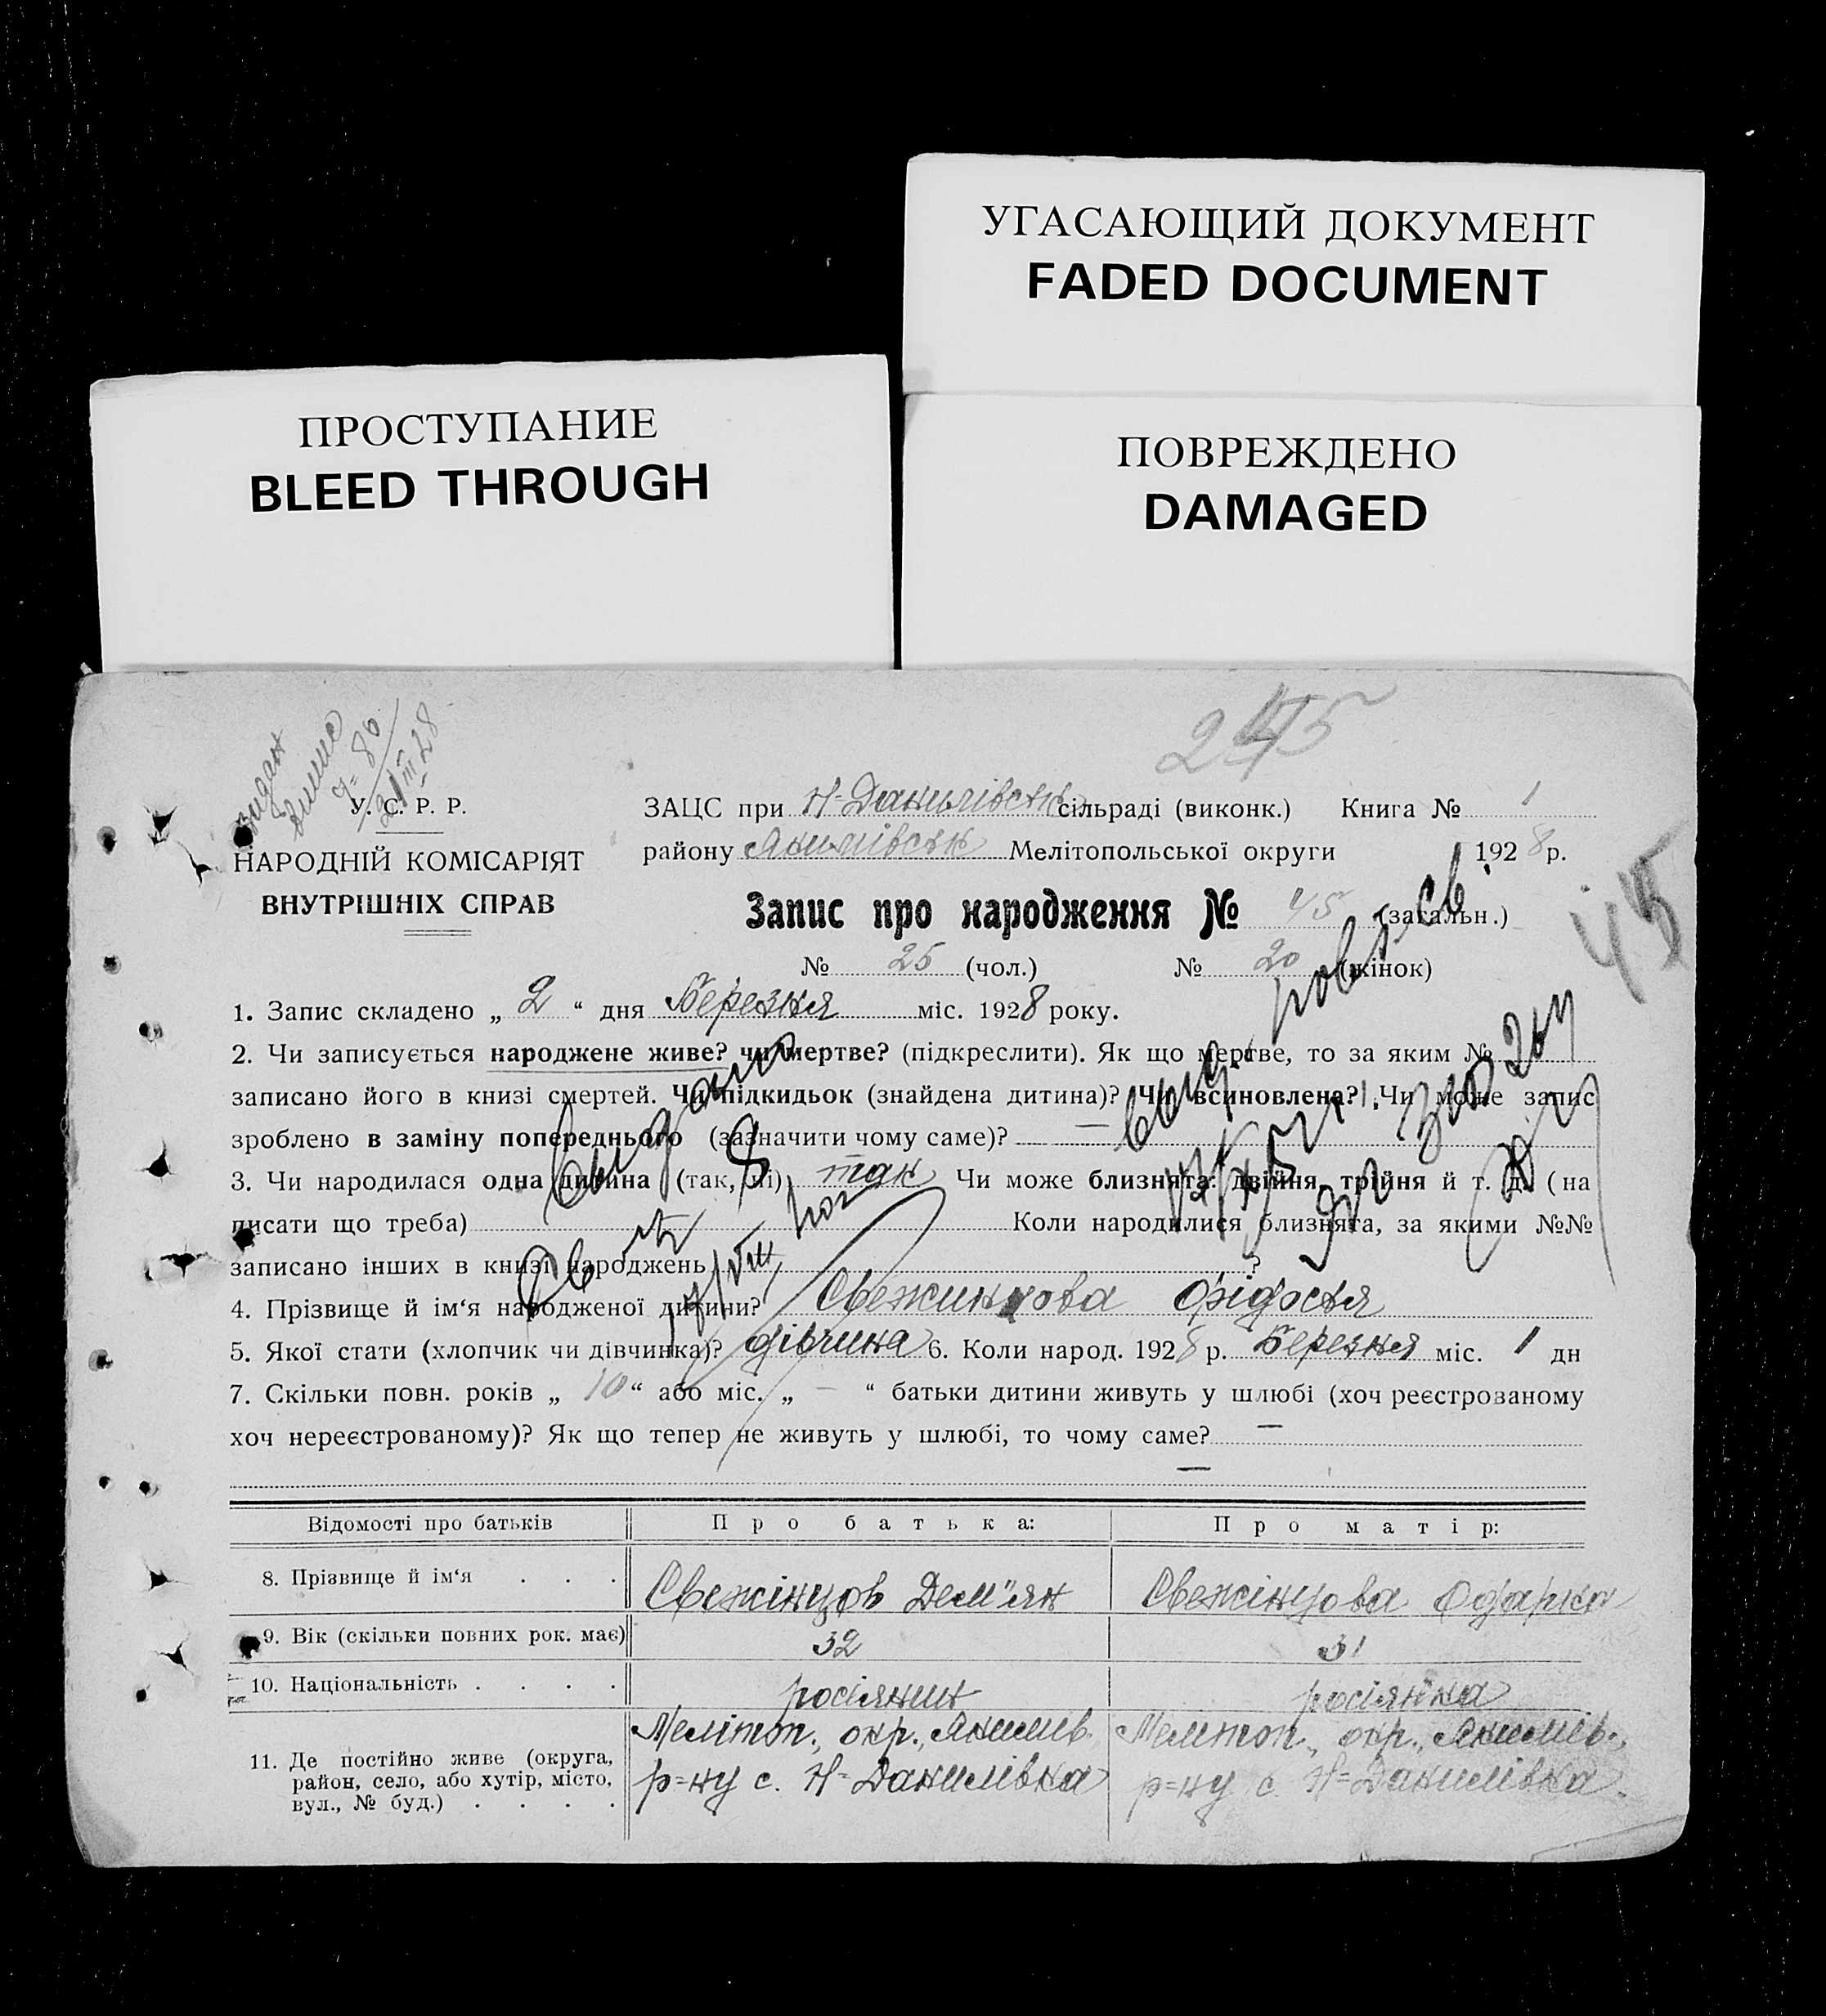 УГАСАЮЩИЙ ДОКУМЕНТ
FADED DOCUMENT
ПРОСТУПАНИЕ
BLEED THROUGH
ПОВРЕЖДЕНО
DAMAGED
245
видан
У. С. Р. Р.
НАРОДНІЙ КОМІСАРІЯТ
ВНУТРІШНІХ СПРАВ
ЗАЦС при Н-Данилівськ сільраді (виконк.) Книга № 1
району Якимівськ Мелітопольської округи 1928 р.
45
Запис про народження № 45 (загальн.)
№ 25 (чол.) № 20 (жінок)
1. Запис складено „ 2 “ дня Березня міс. 1928 року.
2. Чи записується народжене живе? чи мертве? (підкреслити). Як що мертве, то за яким №
записано його в книзі смертей. Чи підкидьок (знайдена дитина)? Чи всиновлена? Чи може запис
зроблено в заміну попереднього (зазначити чому саме)? —
3. Чи народилася одна дитина (так, ні) так Чи може близнята: двійня, трійня й т. д. (на
писати що треба) Коли народилися близнята, за якими №№
записано інших в книзі народжень ?
4. Прізвище й ім‘я народженої дитини? Свежинцова Фідосія
5. Якої стати (хлопчик чи дівчинка)? дівчина 6. Коли народ. 1928 р. Березня міс. 1 дн
7. Скільки повн. років „ 10 “ або міс. „ — “ батьки дитини живуть у шлюбі (хоч реєстрованому
хоч нереєстрованому)? Як що тепер не живуть у шлюбі, то чому саме? —
—
Відомості про батьків Про батька: Про матір:
8. Прізвище й ім‘я . . . Свежінцов Дем"ян Свежінцова Одарка
9. Вік (скільки повних рок. має) 32 31
10. Національність . . . . росіянин росіянка
11. Де постійно живе (округа, район, село, або хутір, місто, вул., № буд.) . . . .
Меліт оп., окр., Якимів. р=ну с. Н=Данилівка
Мелітоп., окр., Якимів., р=ну с. Н=Данилівка.